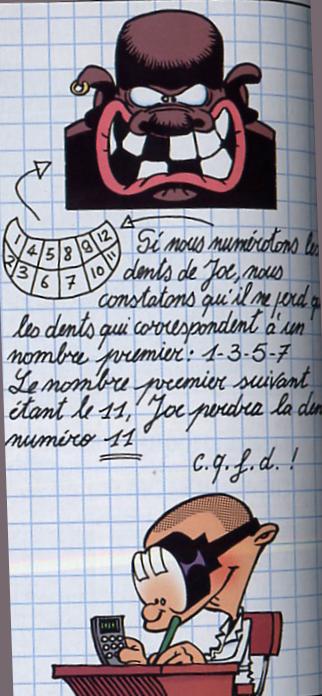 1 4 5 8 9 12
2 3 6 7 10 11
Si nous numérotons les
dents de Joe, nous
constatons qu'il ne perd
les dents qui correspondent à un
nombre premier : 1-3-5-7
Le nombre premier suivant
étant le 11, Joe perdra la
numéro 11
c.q.f.d. !